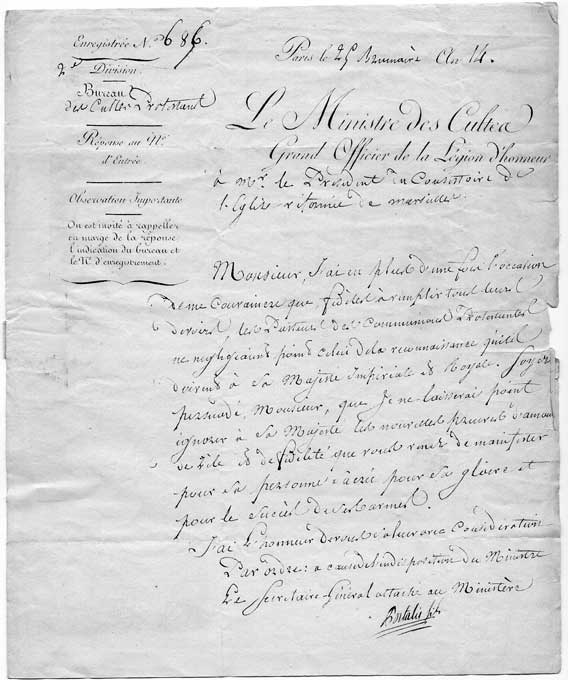 Enregistrée N.º 686.
2e Division.
Bureau
des Cultes Protestants
Réponse au N.º
d'Entrée.
Observation Importante
On est invité à rappeller
en marge de la réponse
l'indication du bureau et
le N.º d'enregistrement.
Paris le 25 Brumaire An 14.
Le Ministre des Cultes
Grand Officier de la Légion d'honneur
à Mr. le Président du Consistoire de
l'Eglise réformée de Marseille.
Monsieur, J'ai eu plus d'une fois l'occasion
de me convaincre que, fidèles à remplir tous leurs
devoirs les Pasteurs des Communions Protestantes
ne négligeaient point celui de la reconnaissance qu'ils
doivent à Sa Majesté Impériale et Royale. Soyez
persuadé, Monsieur, que Je ne laisserai point
ignorer à Sa Majesté les nouvelles preuves d'amour
de zèle et de fidélité que vous venez de manifester
pour sa personne sacrée pour sa gloire et
pour le succès de ses armes.
J'ai l'honneur de vous saluer avec Considération
Par ordre : à cause de l'indisposition du Ministre
Le Secrétaire Général attaché au Ministère
Portalis fils